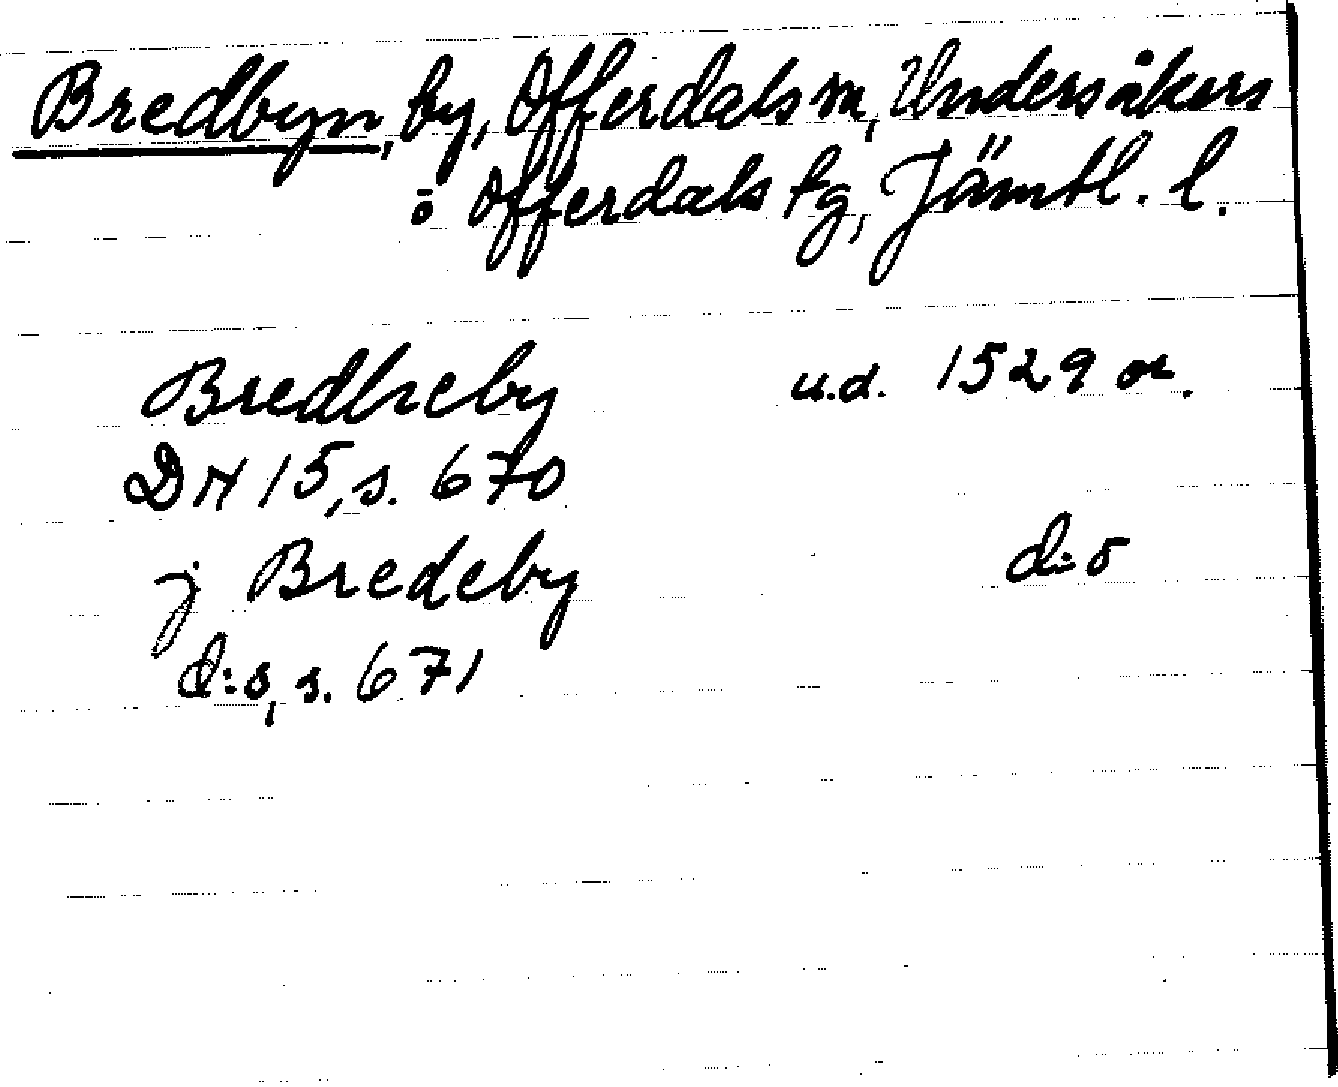 Bredbyn, by, Offerdals sn, Undersåkers
o Offerdals tg, Jämtl. l.
Bredheby u.d. 1529 or.
DN 15, s. 670
j Bredeby d:o
d:o, s. 671